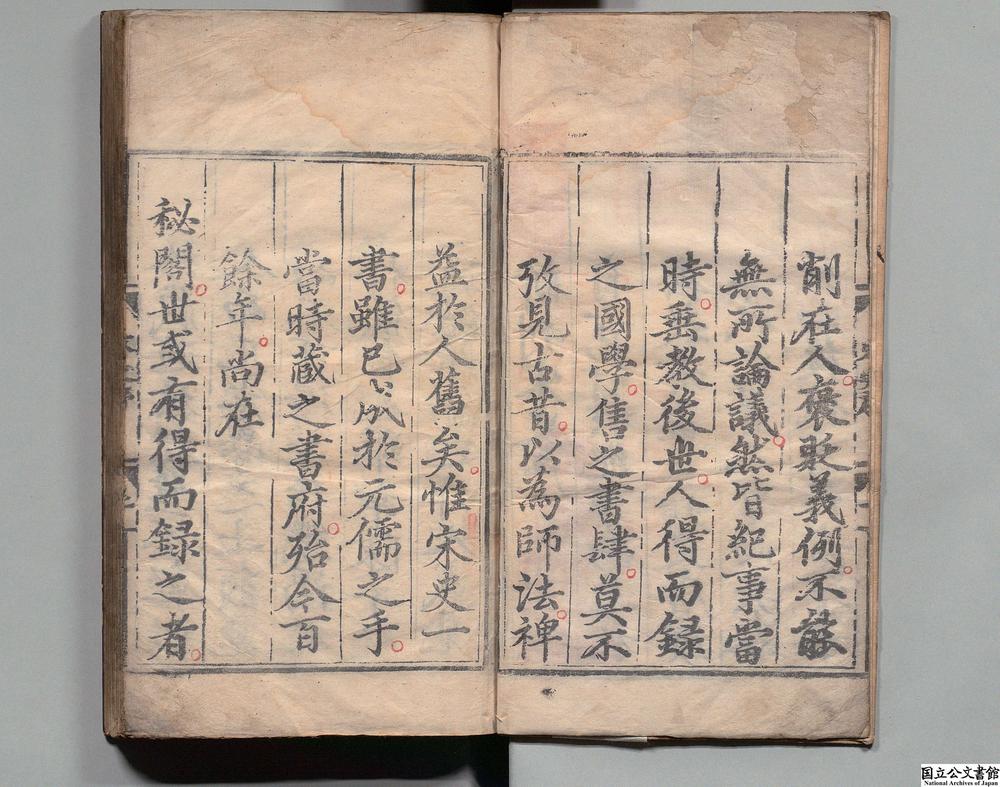 削在人褒貶義例不能
無所論議然皆紀事當
時垂教後世人得而録
之國學售之書肆莫不
攷見古昔以為師法裨
益於人舊矣惟宋史一
書雖已成於元儒之手
當時藏之書府殆今百
餘年尚在
秘閣世或有得而録之者
国立公文書館
National Archives of Japan